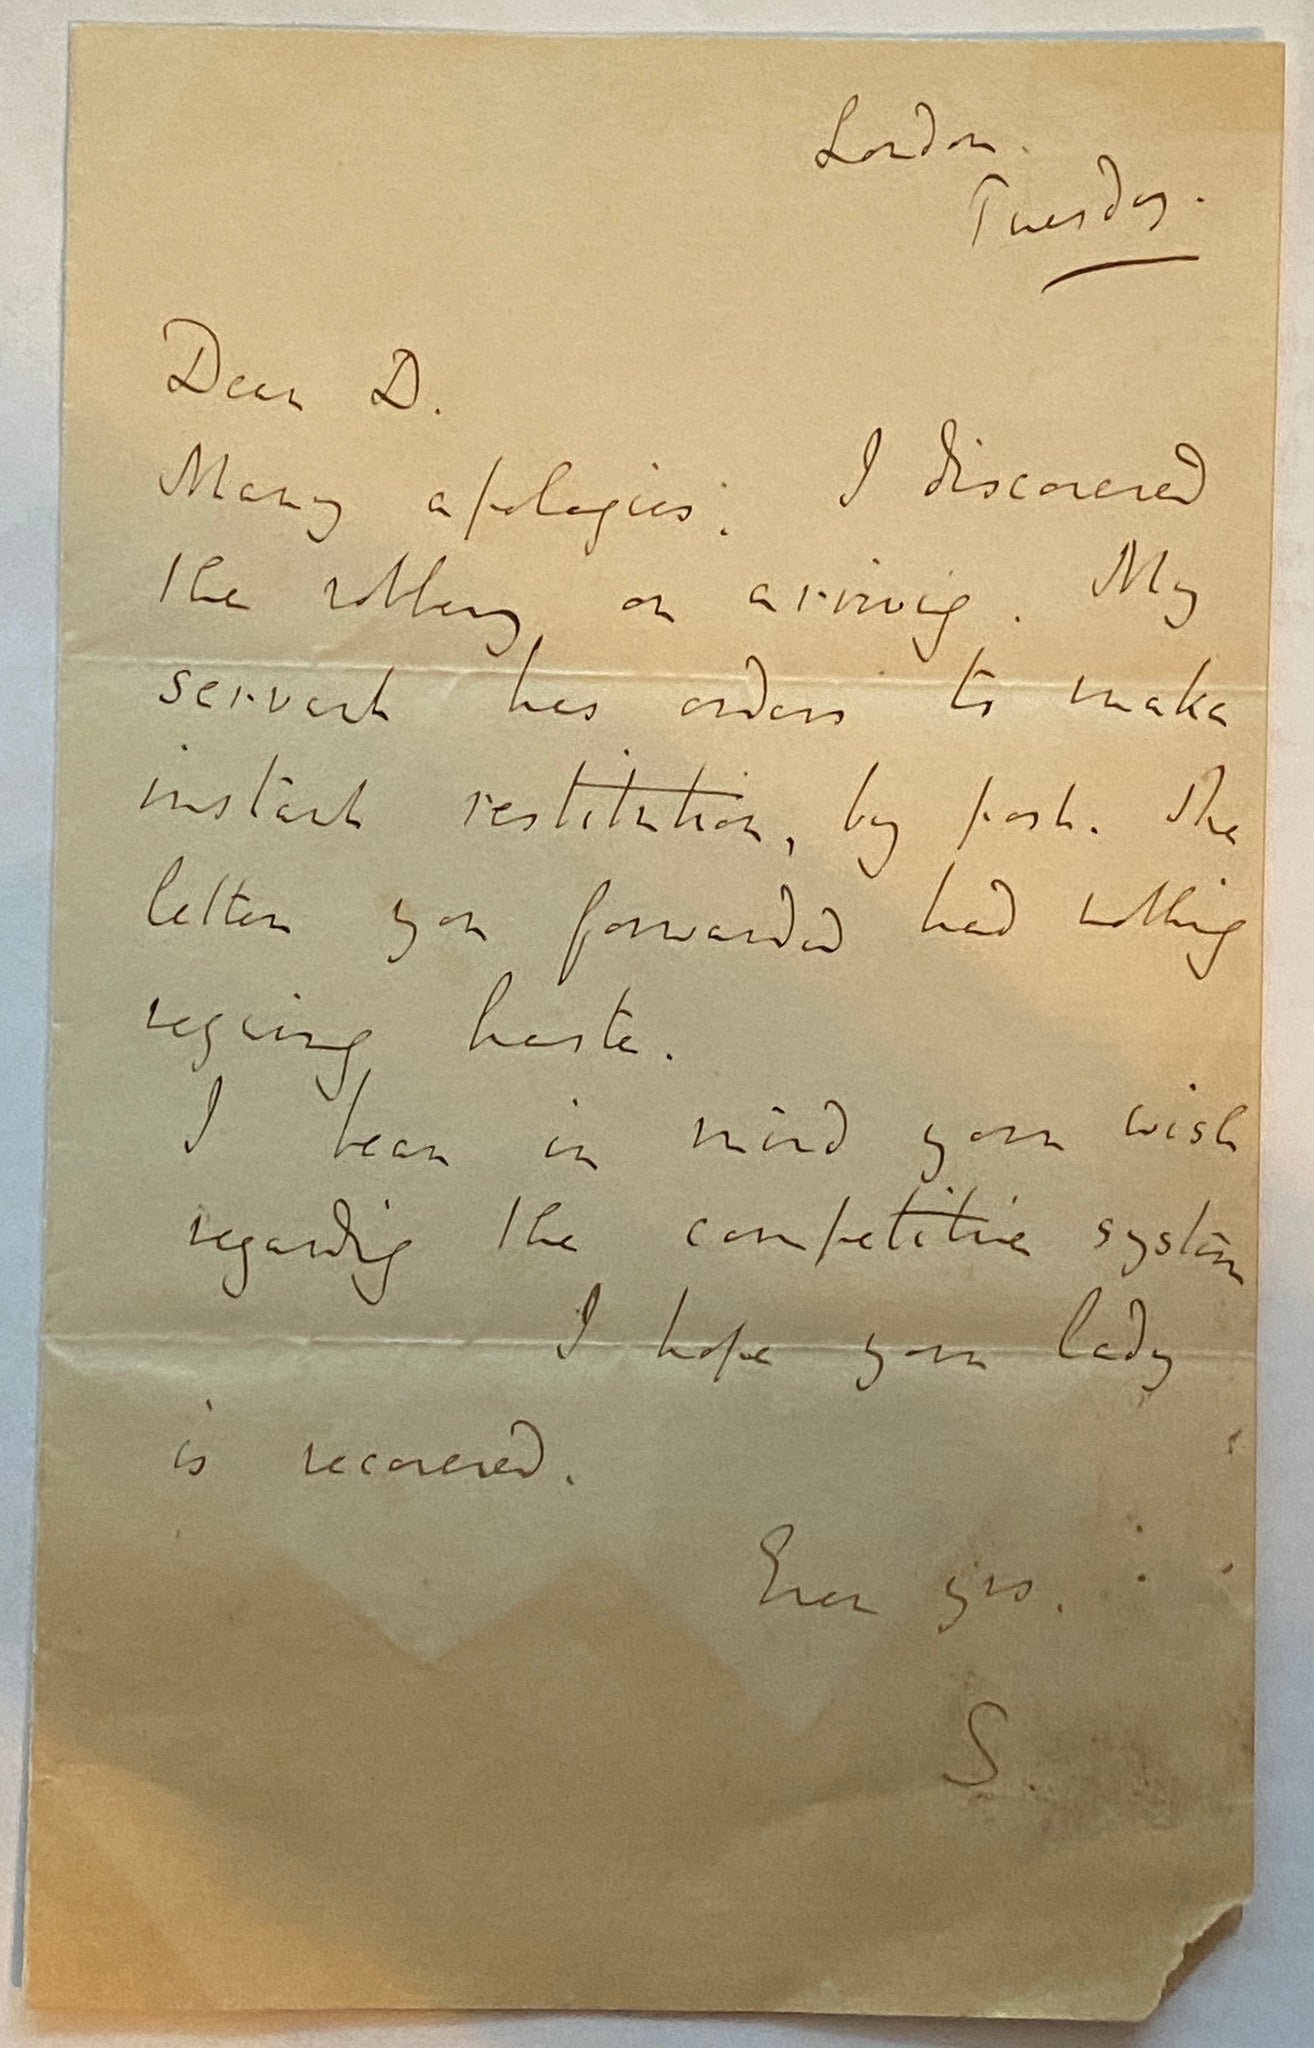 London.
Tuesday.
Dear D.
Many apologies. I discovered
the robbery on arriving. My
servant has orders to make
instant restitution, by post. The
letter you forwarded had nothing
requiring haste.
I bear in mind your wish
regarding the competitive system
I hope your lady
is recovered.
Ever yrs.
S.